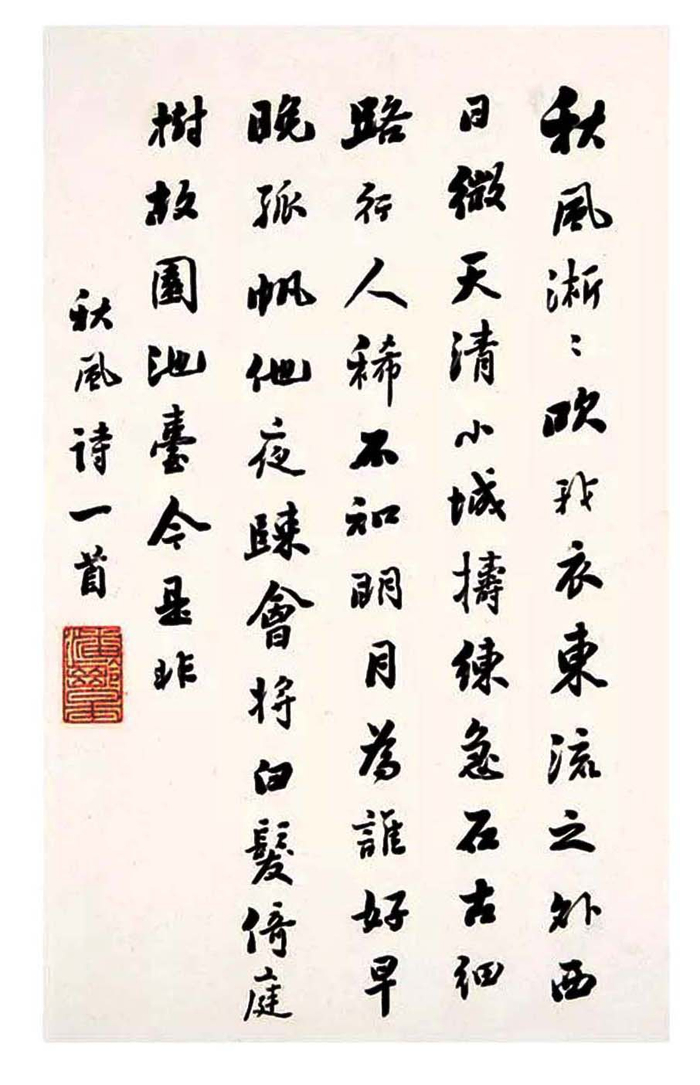 秋風淅〻吹我衣東流之外西
日微天清小城擣練急石古細
路行人稀不知明月為誰好早
晚孤帆他夜歸會將白髮倚庭
樹故園池臺今是非
秋風詩一首